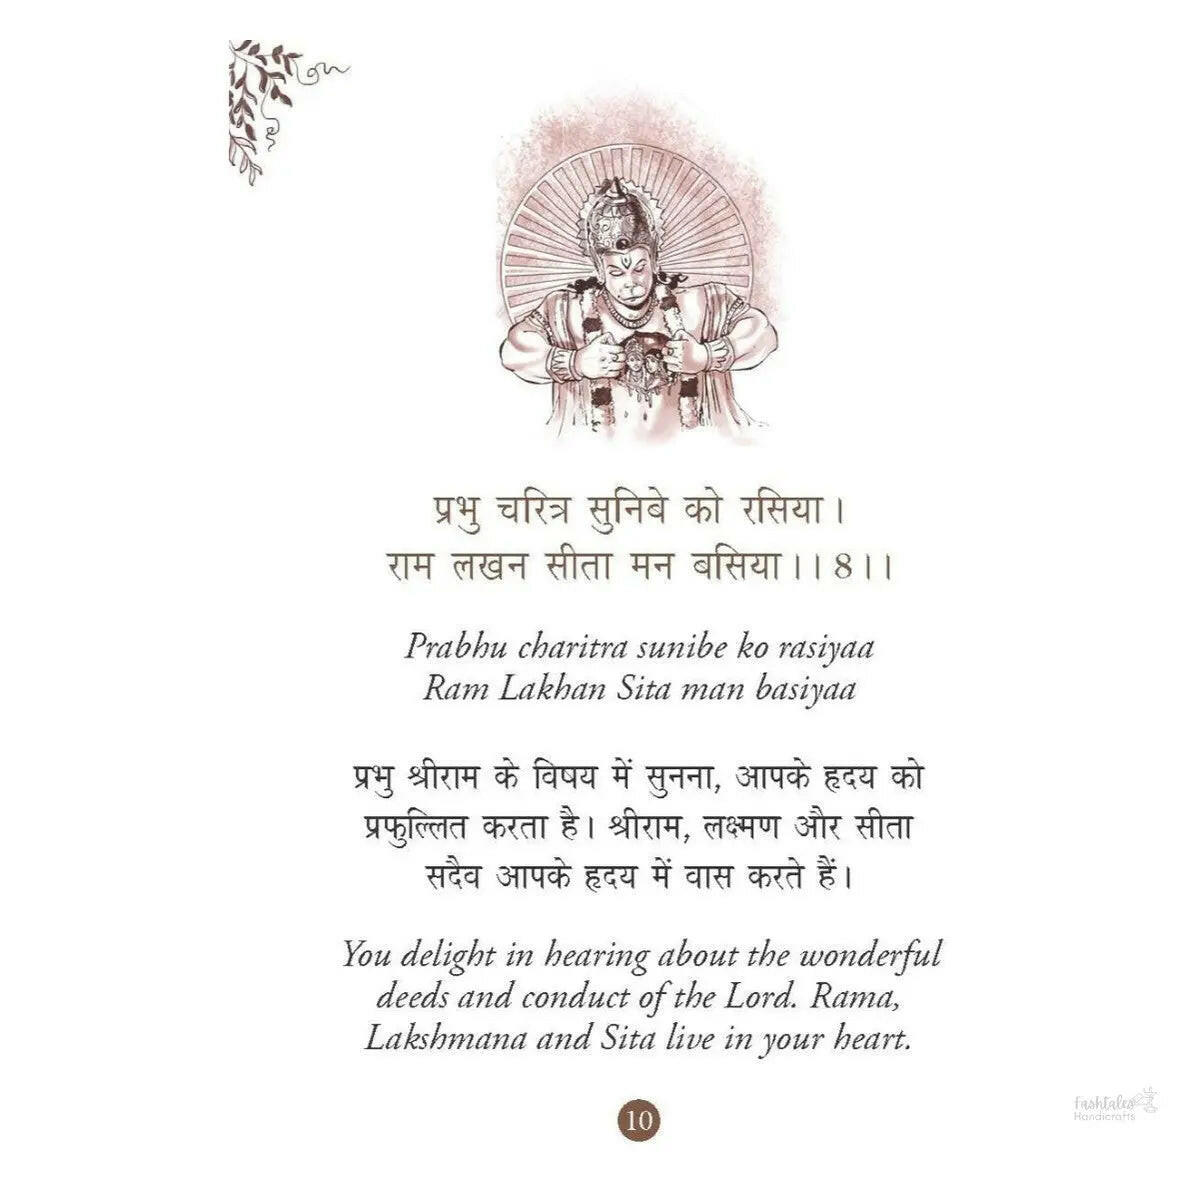 प्रभु चरित्र सुनिबे को रसिया।
राम लखन सीता मन बसिया।। 8।।
Prabhu charitra sunibe ko rasiyaa
Ram Lakhan Sita man basiyaa
प्रभु श्रीराम के विषय में सुनना, आपके हृदय को
प्रफुल्लित करता है। श्रीराम, लक्ष्मण और सीता
सदैव आपके हृदय में वास करते हैं।
You delight in hearing about the wonderful
deeds and conduct of the Lord. Rama,
Lakshmana and Sita live in your heart.
10
Fashtales
Handicrafts